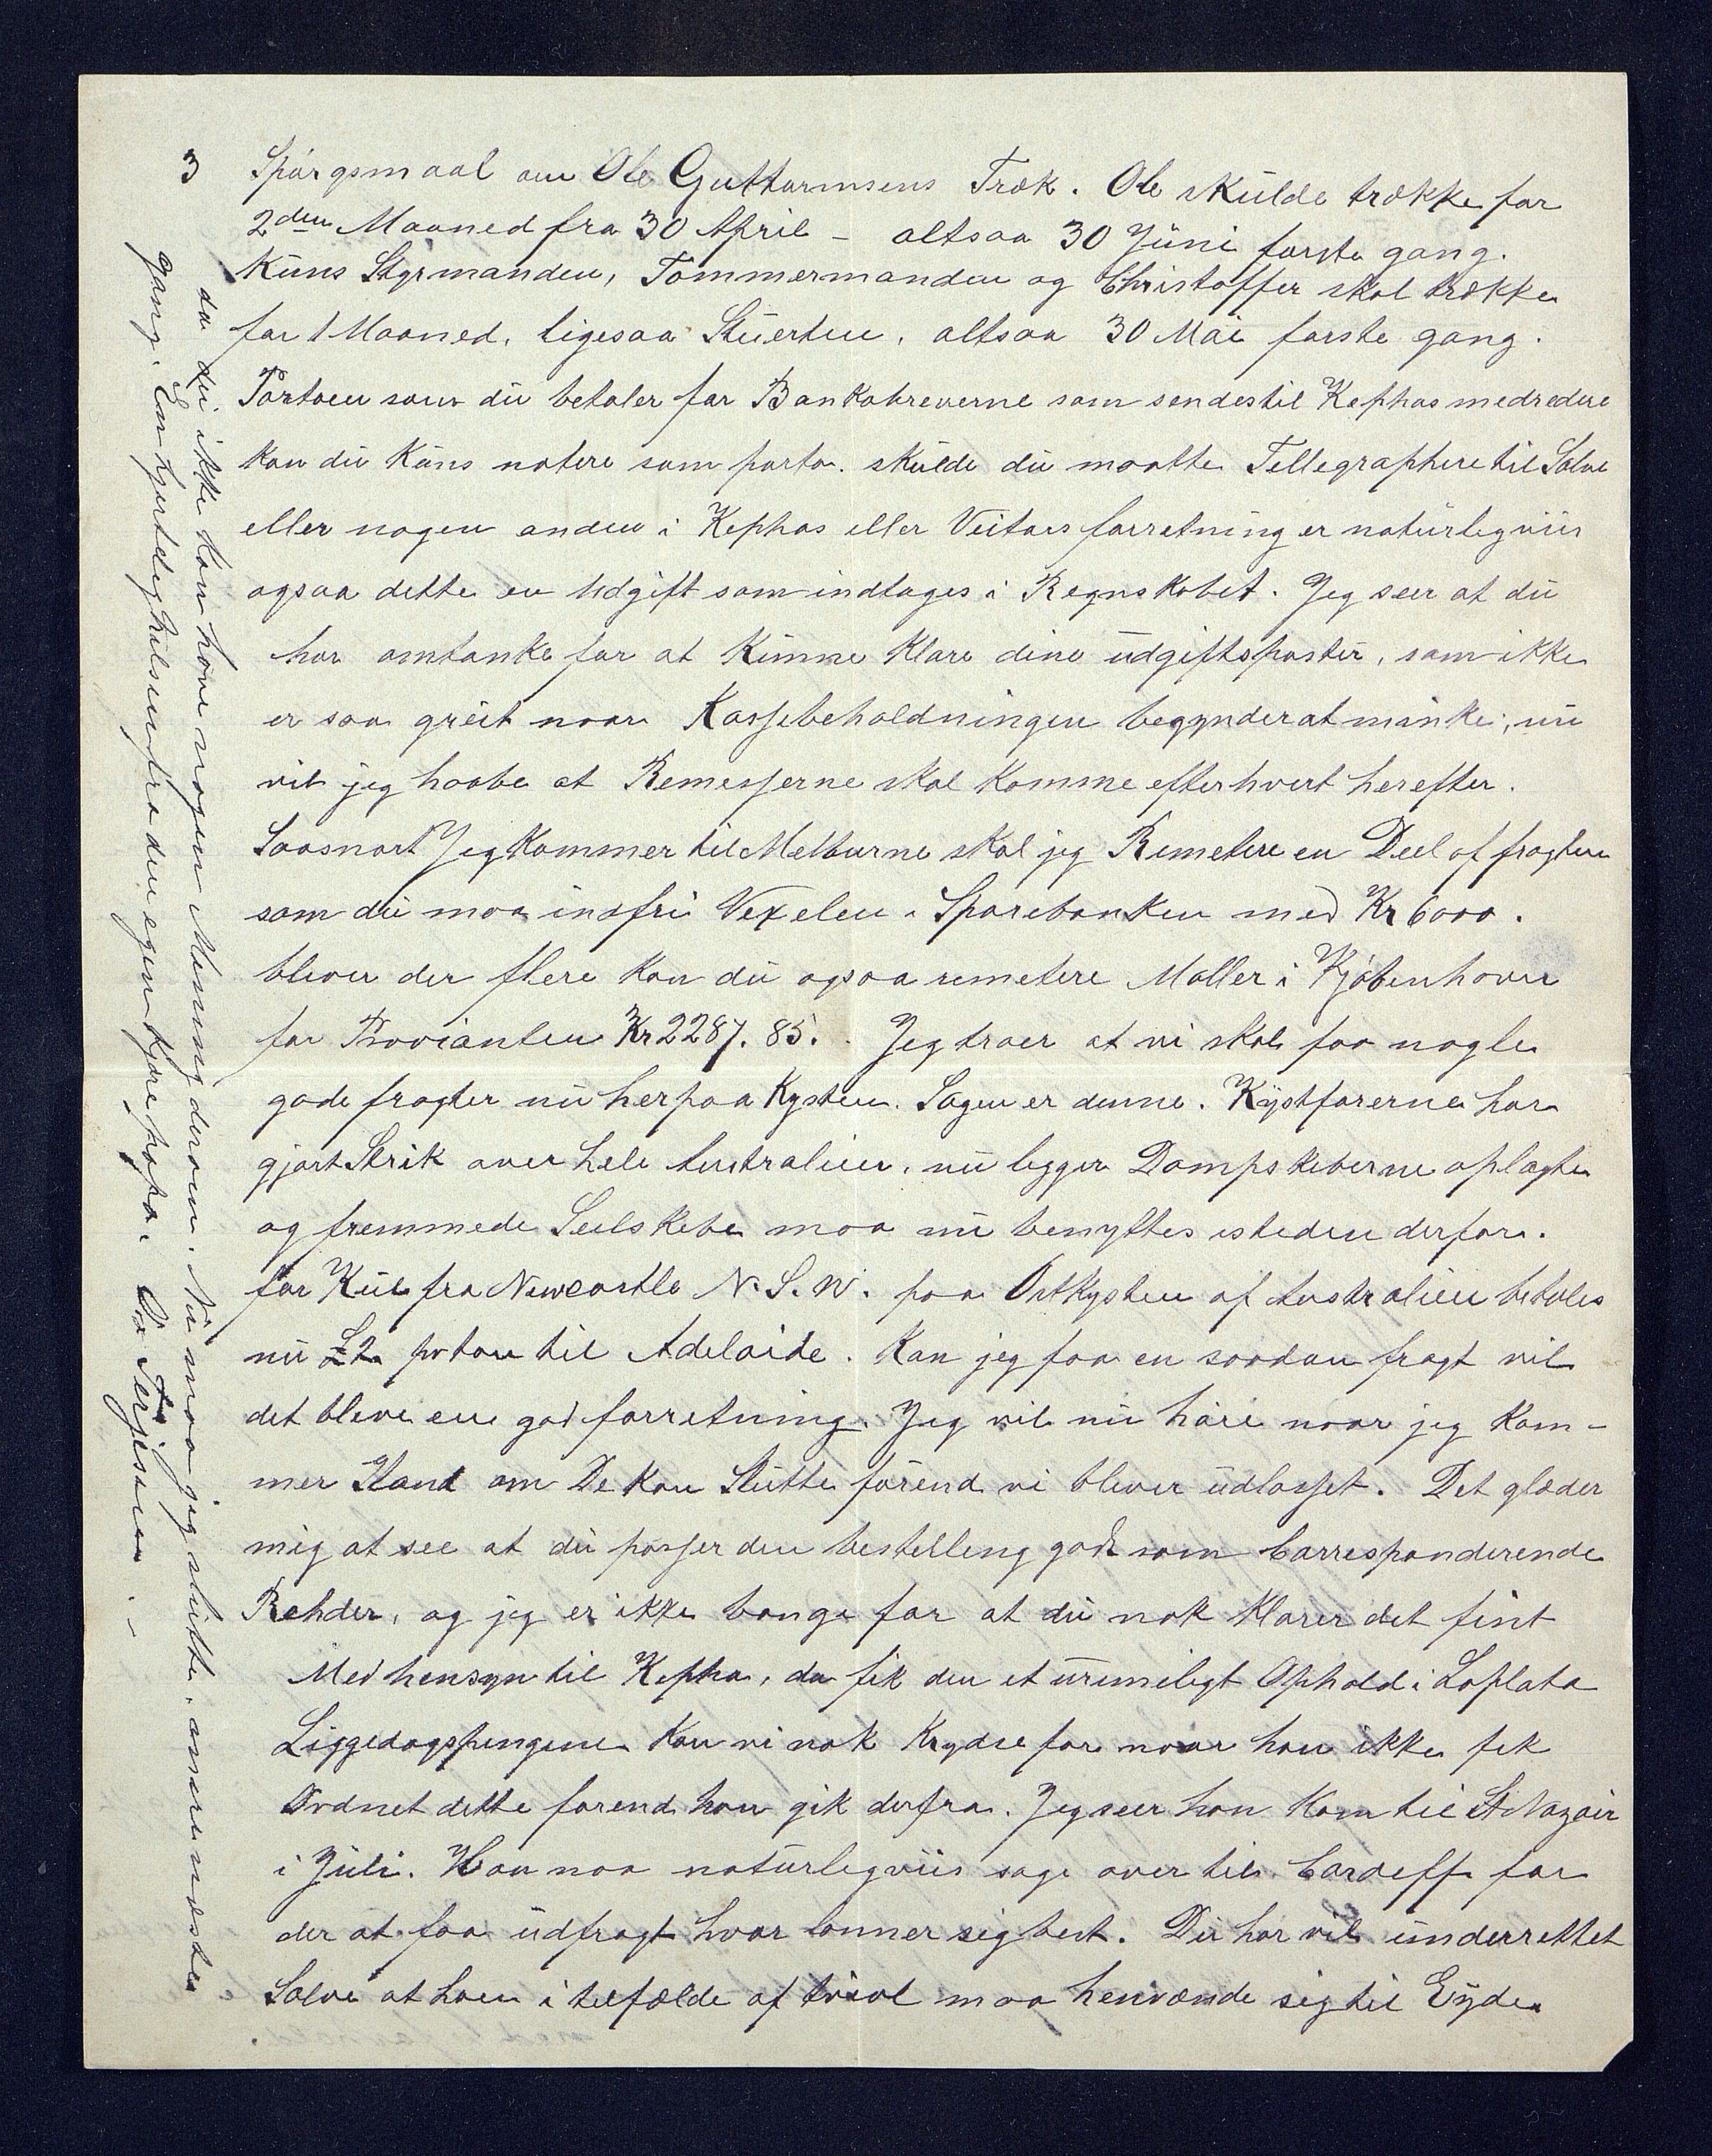 3
Spørgsmaal om Ole Guttormsens Træk. Ole skulde trække for
2den Maaned fra 30 April - altsaa 30 Juni første gang.
Kuns Styrmanden, Tømmermanden og Christoffer skal trække
for 1 Maaned, ligesaa Stuerten, altsaa 30 Mai første gang.
Portoen som du betaler for Bankobreverne som sendes til Kephas medredere
kan du kuns notere som porto. skulde du maatte Tellegraphere til Salve
eller nogen anden i Kephas eller forretning er naturligviis
ogsaa dette en Udgift som indtages i Regnskabet. Jeg seer at du
har omtanke for at kunne klare dine udgiftsposter, som ikke
er saa greit naar Kassebeholdningen begynder at minke, nu
vil jeg haabe at Remesserne skal komme efterhvert herefter.
Saasnart Jeg kommer til Melburne skal jeg Remetere en Deel af fragten
som du maa indfri Vexelen i Sparebanken med Kr 6000.
bliver der flere kan du ogsaa remetere Møller i Kjøbenhavn
for Provianten Kr 2287.85. Jeg troer at vi skal faa nogle
gode fragter nu her paa Kysten. Sagen er denne. Kystfarerne har
gjort Strik over hele Australien, nu ligger Dampskeberne oplagte
og fremmede Seilskebe maa nu benyttes isteden derfor.
for Kul fra Newcastle N.S.W. paa Østkysten af Australien betales
nu £2 pr ton til Adelaide. Kan jeg faa en saadan fragt vil
det blive en god forretning. Jeg vil nu høre naar jeg kom-
mer Iland om De kan Slutte førend vi bliver udlosset. Det glæder
mig at see at du passer den bestelling godt som Corresponderende
Rehder, og jeg er ikke bange for at du nok klarer det fint
Med hensyn til Kepha, da fik den et urimeligt Ophold i Laplata
Liggedagspengene kan vi nok krydse for naar han ikke fik
Ordnet dette førend han gik derfra. Jeg seer han kom til St Nazair
i Juli. Han maa naturligviis søge over til Cardeff for
der at faa udfragt hvor lønner sig best. Du har vel underrettet
Salve at han i tilfælde af tvivl maa henvænde sig til Eyde
da du ikke kan have nogen Mening derom. Nu maa jeg slutte, næste
gang. En hjertelig hilsen fra din egen kjære papa. Terjesen